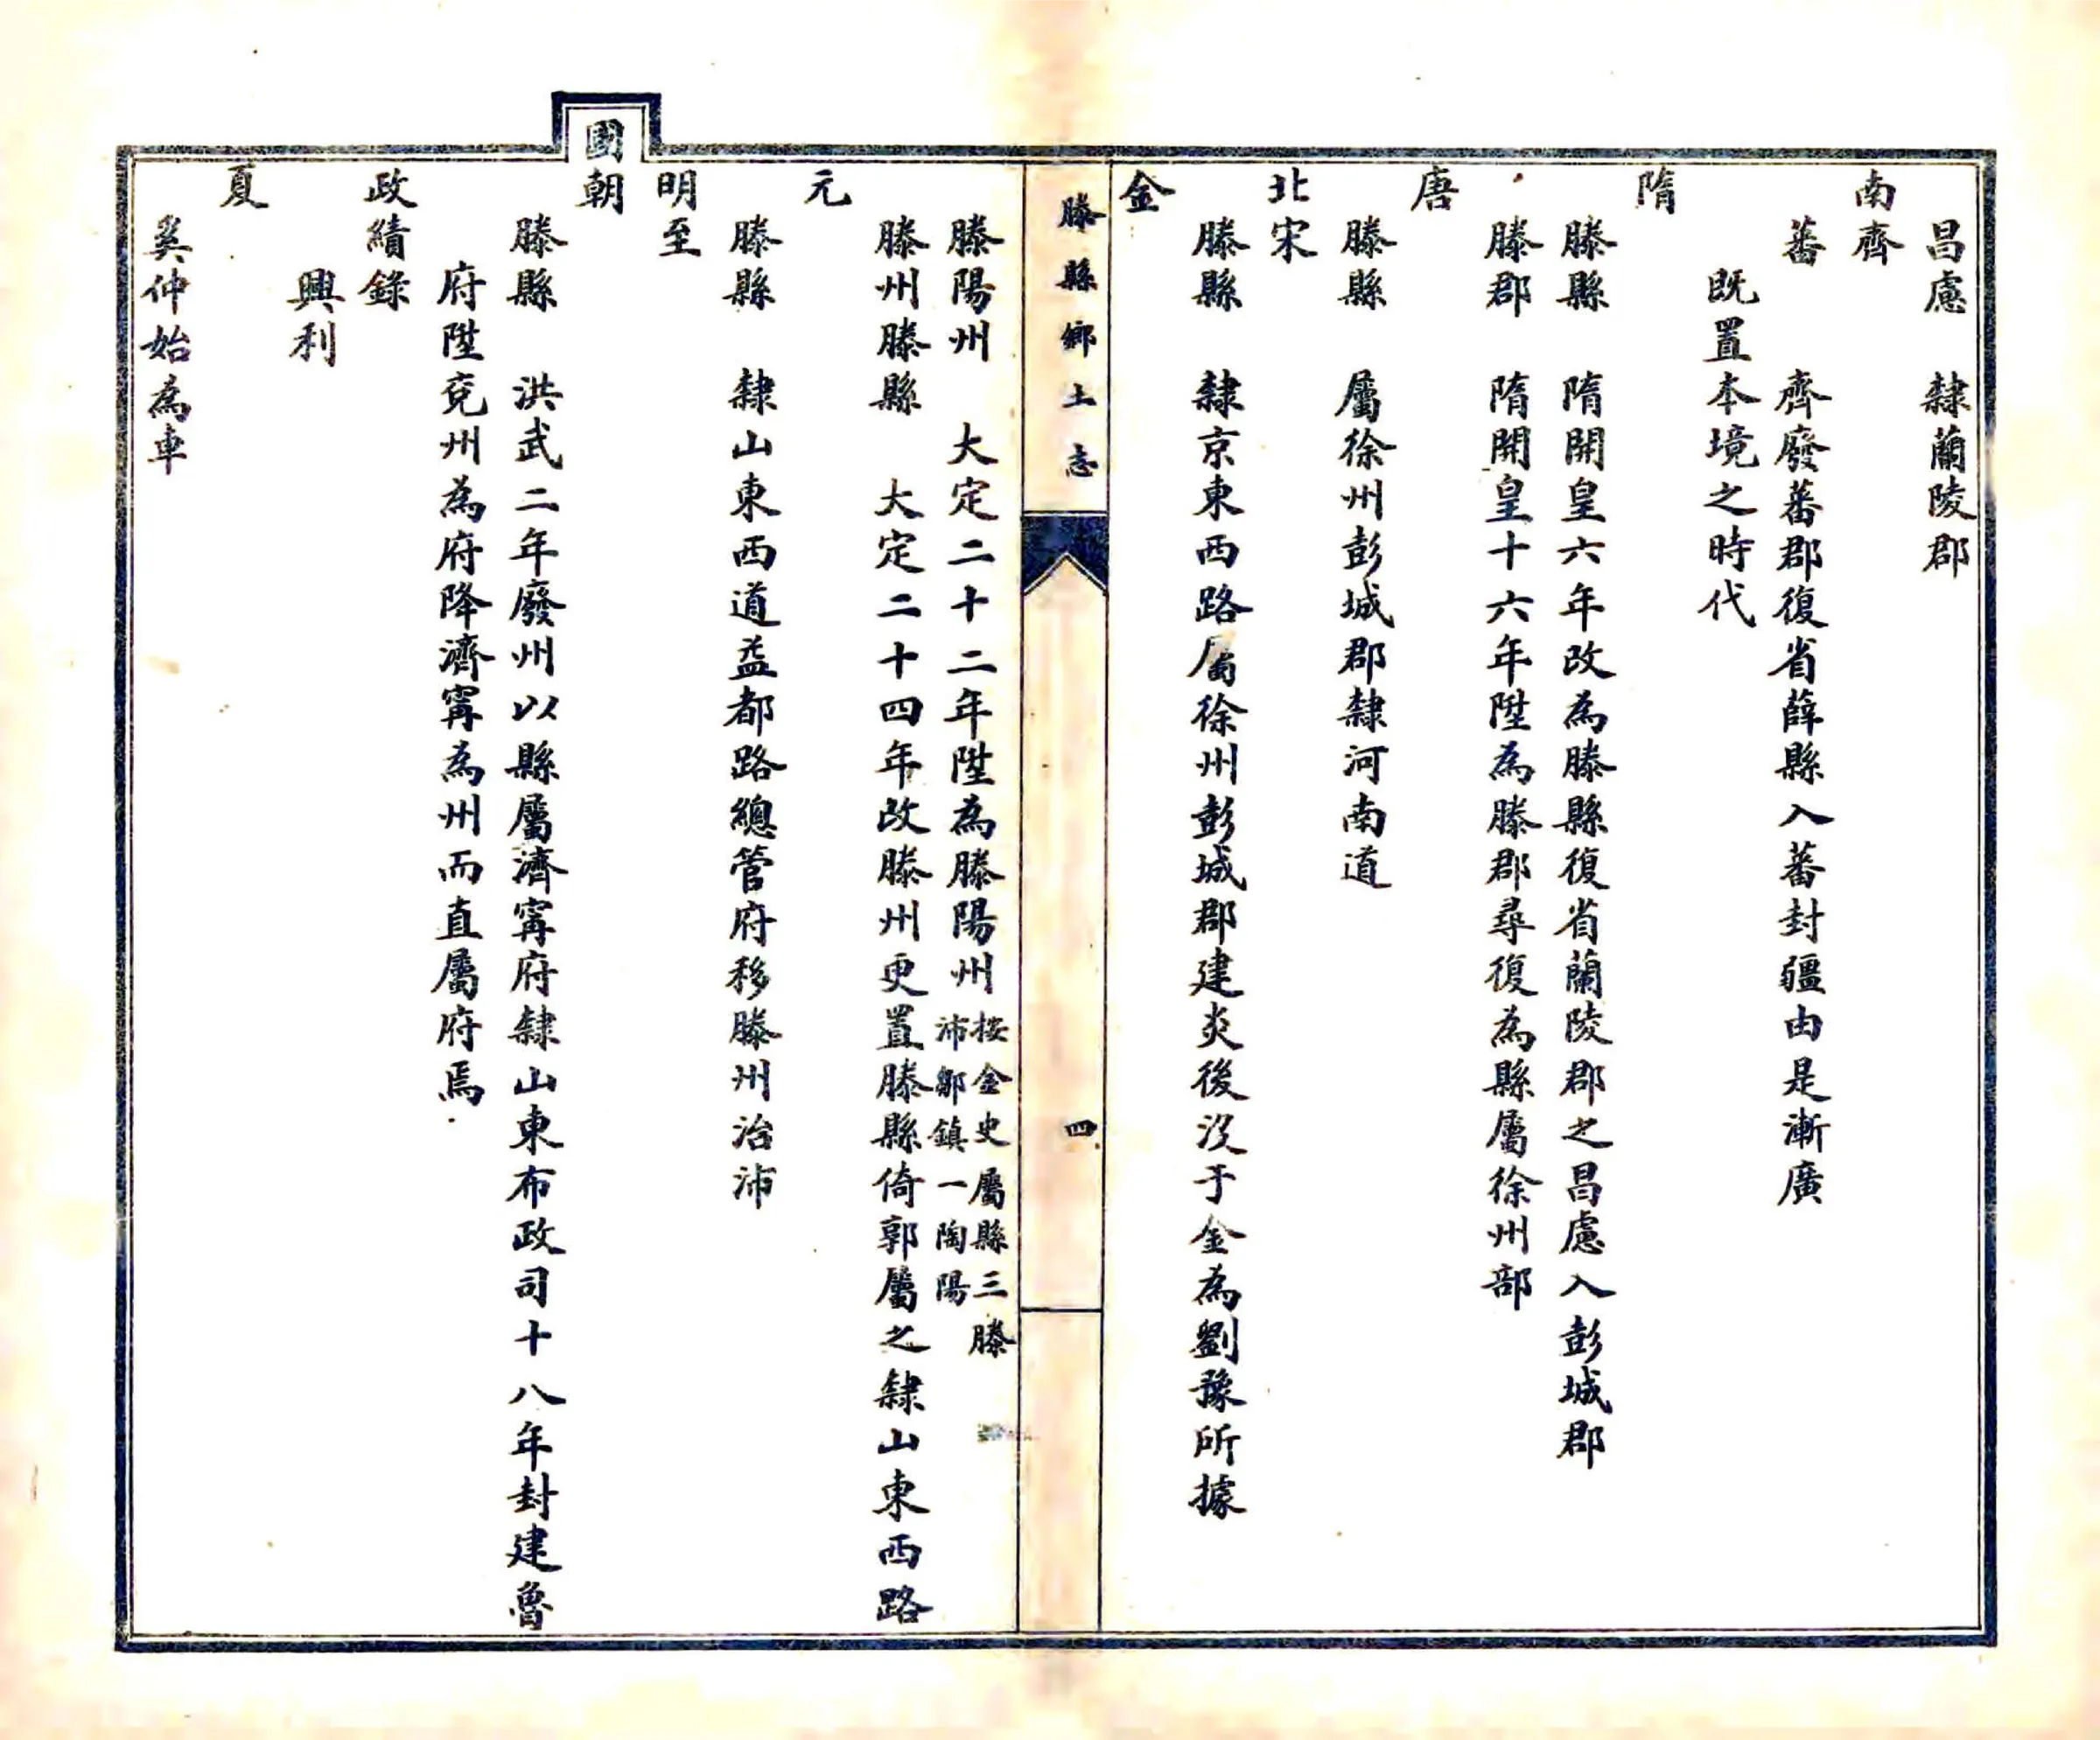 昌慮　隸蘭陵郡
南齊
蕃　　齊廢蕃郡復省薛縣入蕃封疆由是漸廣
既置本境之時代
隋
滕縣　隋開皇六年改為滕縣復省蘭陵郡之昌慮入彭城郡
滕郡　隋開皇十六年陞為滕郡尋復為縣屬徐州部
唐
滕縣　屬徐州彭城郡隸河南道
北宋
滕縣　隸京東西路屬徐州彭城郡建炎後沒于金為劉豫所據
金
滕縣鄉土志
四
滕陽州　大定二十二年陞為滕陽州
按金史屬縣三滕
沛鄒鎮一陶陽
滕州滕縣　大定二十四年改滕州更置滕縣倚郭屬之隸山東西路
元
滕縣　隸山東西道益都路總管府移滕州治沛
明至
國朝
滕縣　洪武二年廢州以縣屬濟甯府隸山東布政司十八年封建魯
府陞兗州為府降濟甯為州而直屬府焉
政績錄
興利
夏
奚仲始為車